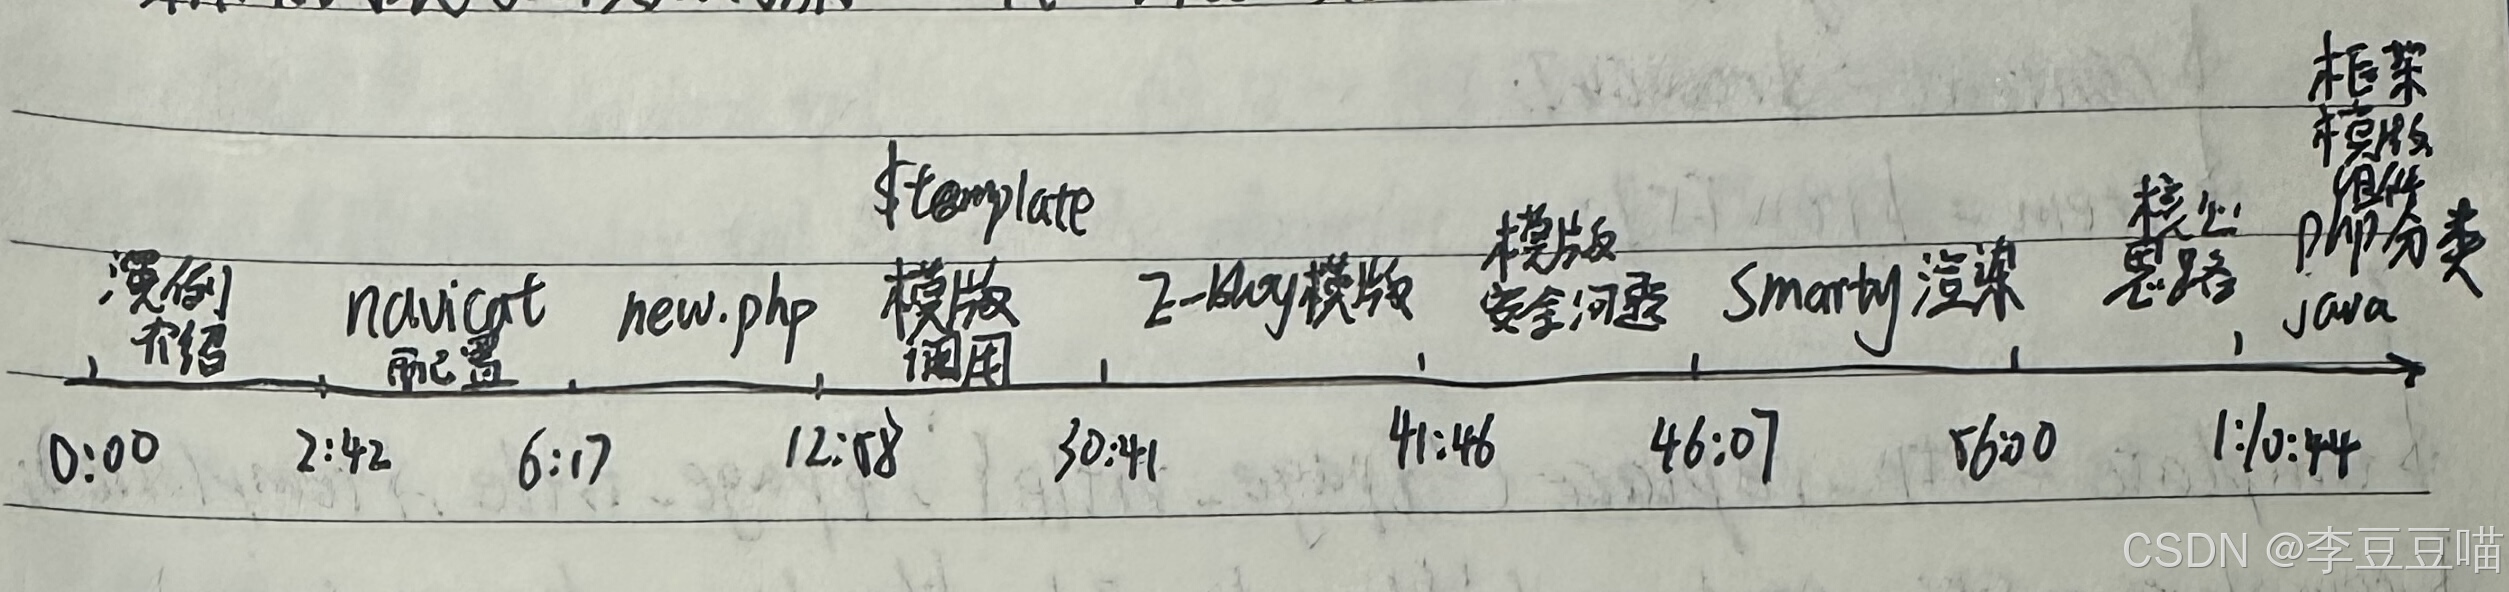 框架
模版
组件
$template
核心
php分类
模版
演例
navicat
new.php
模版
Z-blog模版
安全问题
Smarty渲染
思路
java
介绍
配置
调用
0:00
2:42
6:17
12:58
30:41
41:46
46:07
56:00
1:10:44
CSDN @李豆豆喵